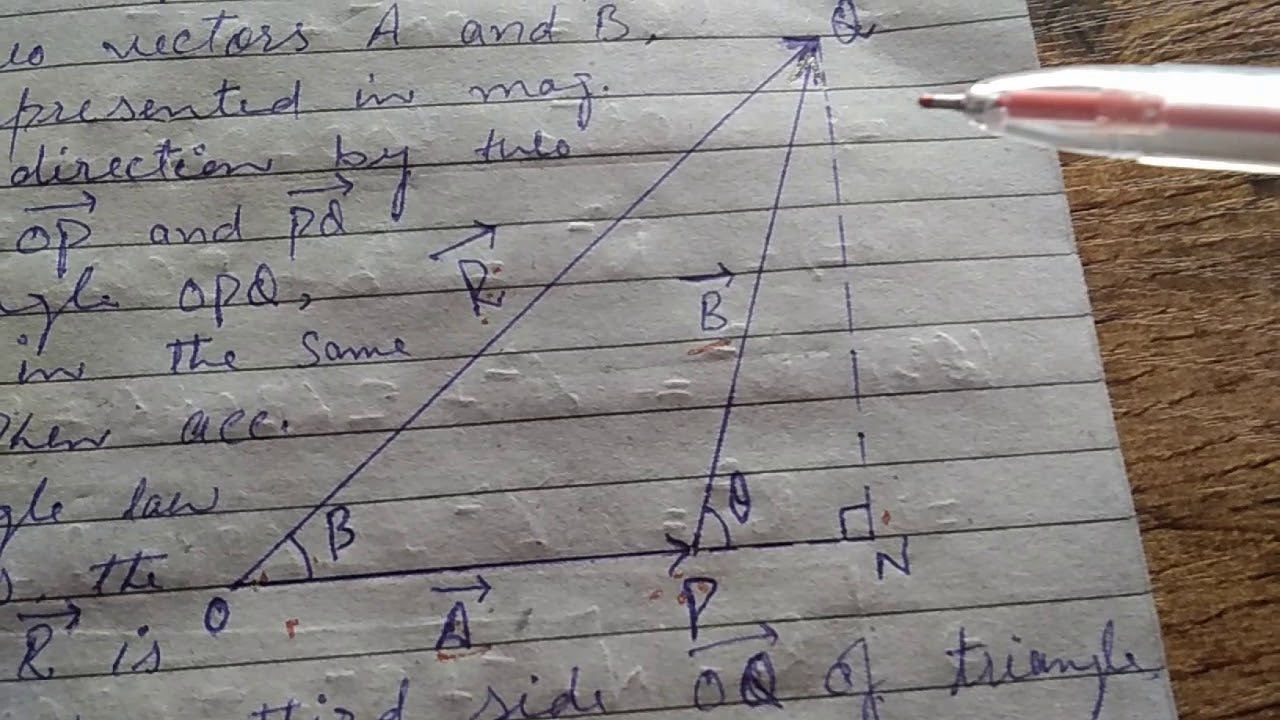 vectors A and B,
presented in mag.
direction by two
OP and PQ
OPQ,
in the same
then acc.
law
the
R is
third side OQ of triangle
Q
R
B
θ
B
N
O
A
P